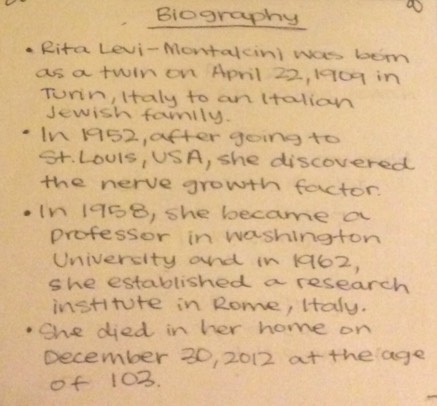 Biography
• Rita Levi-Montalcini was born
as a twin on April 22, 1909 in
Turin, Italy to an Italian
Jewish family.
• In 1952, after going to
St. Louis, USA, she discovered
the nerve growth factor.
• In 1958, she became a
professor in Washington
University and in 1962,
she established a research
institute in Rome, Italy.
• She died in her home on
December 30, 2012 at the age
of 103.